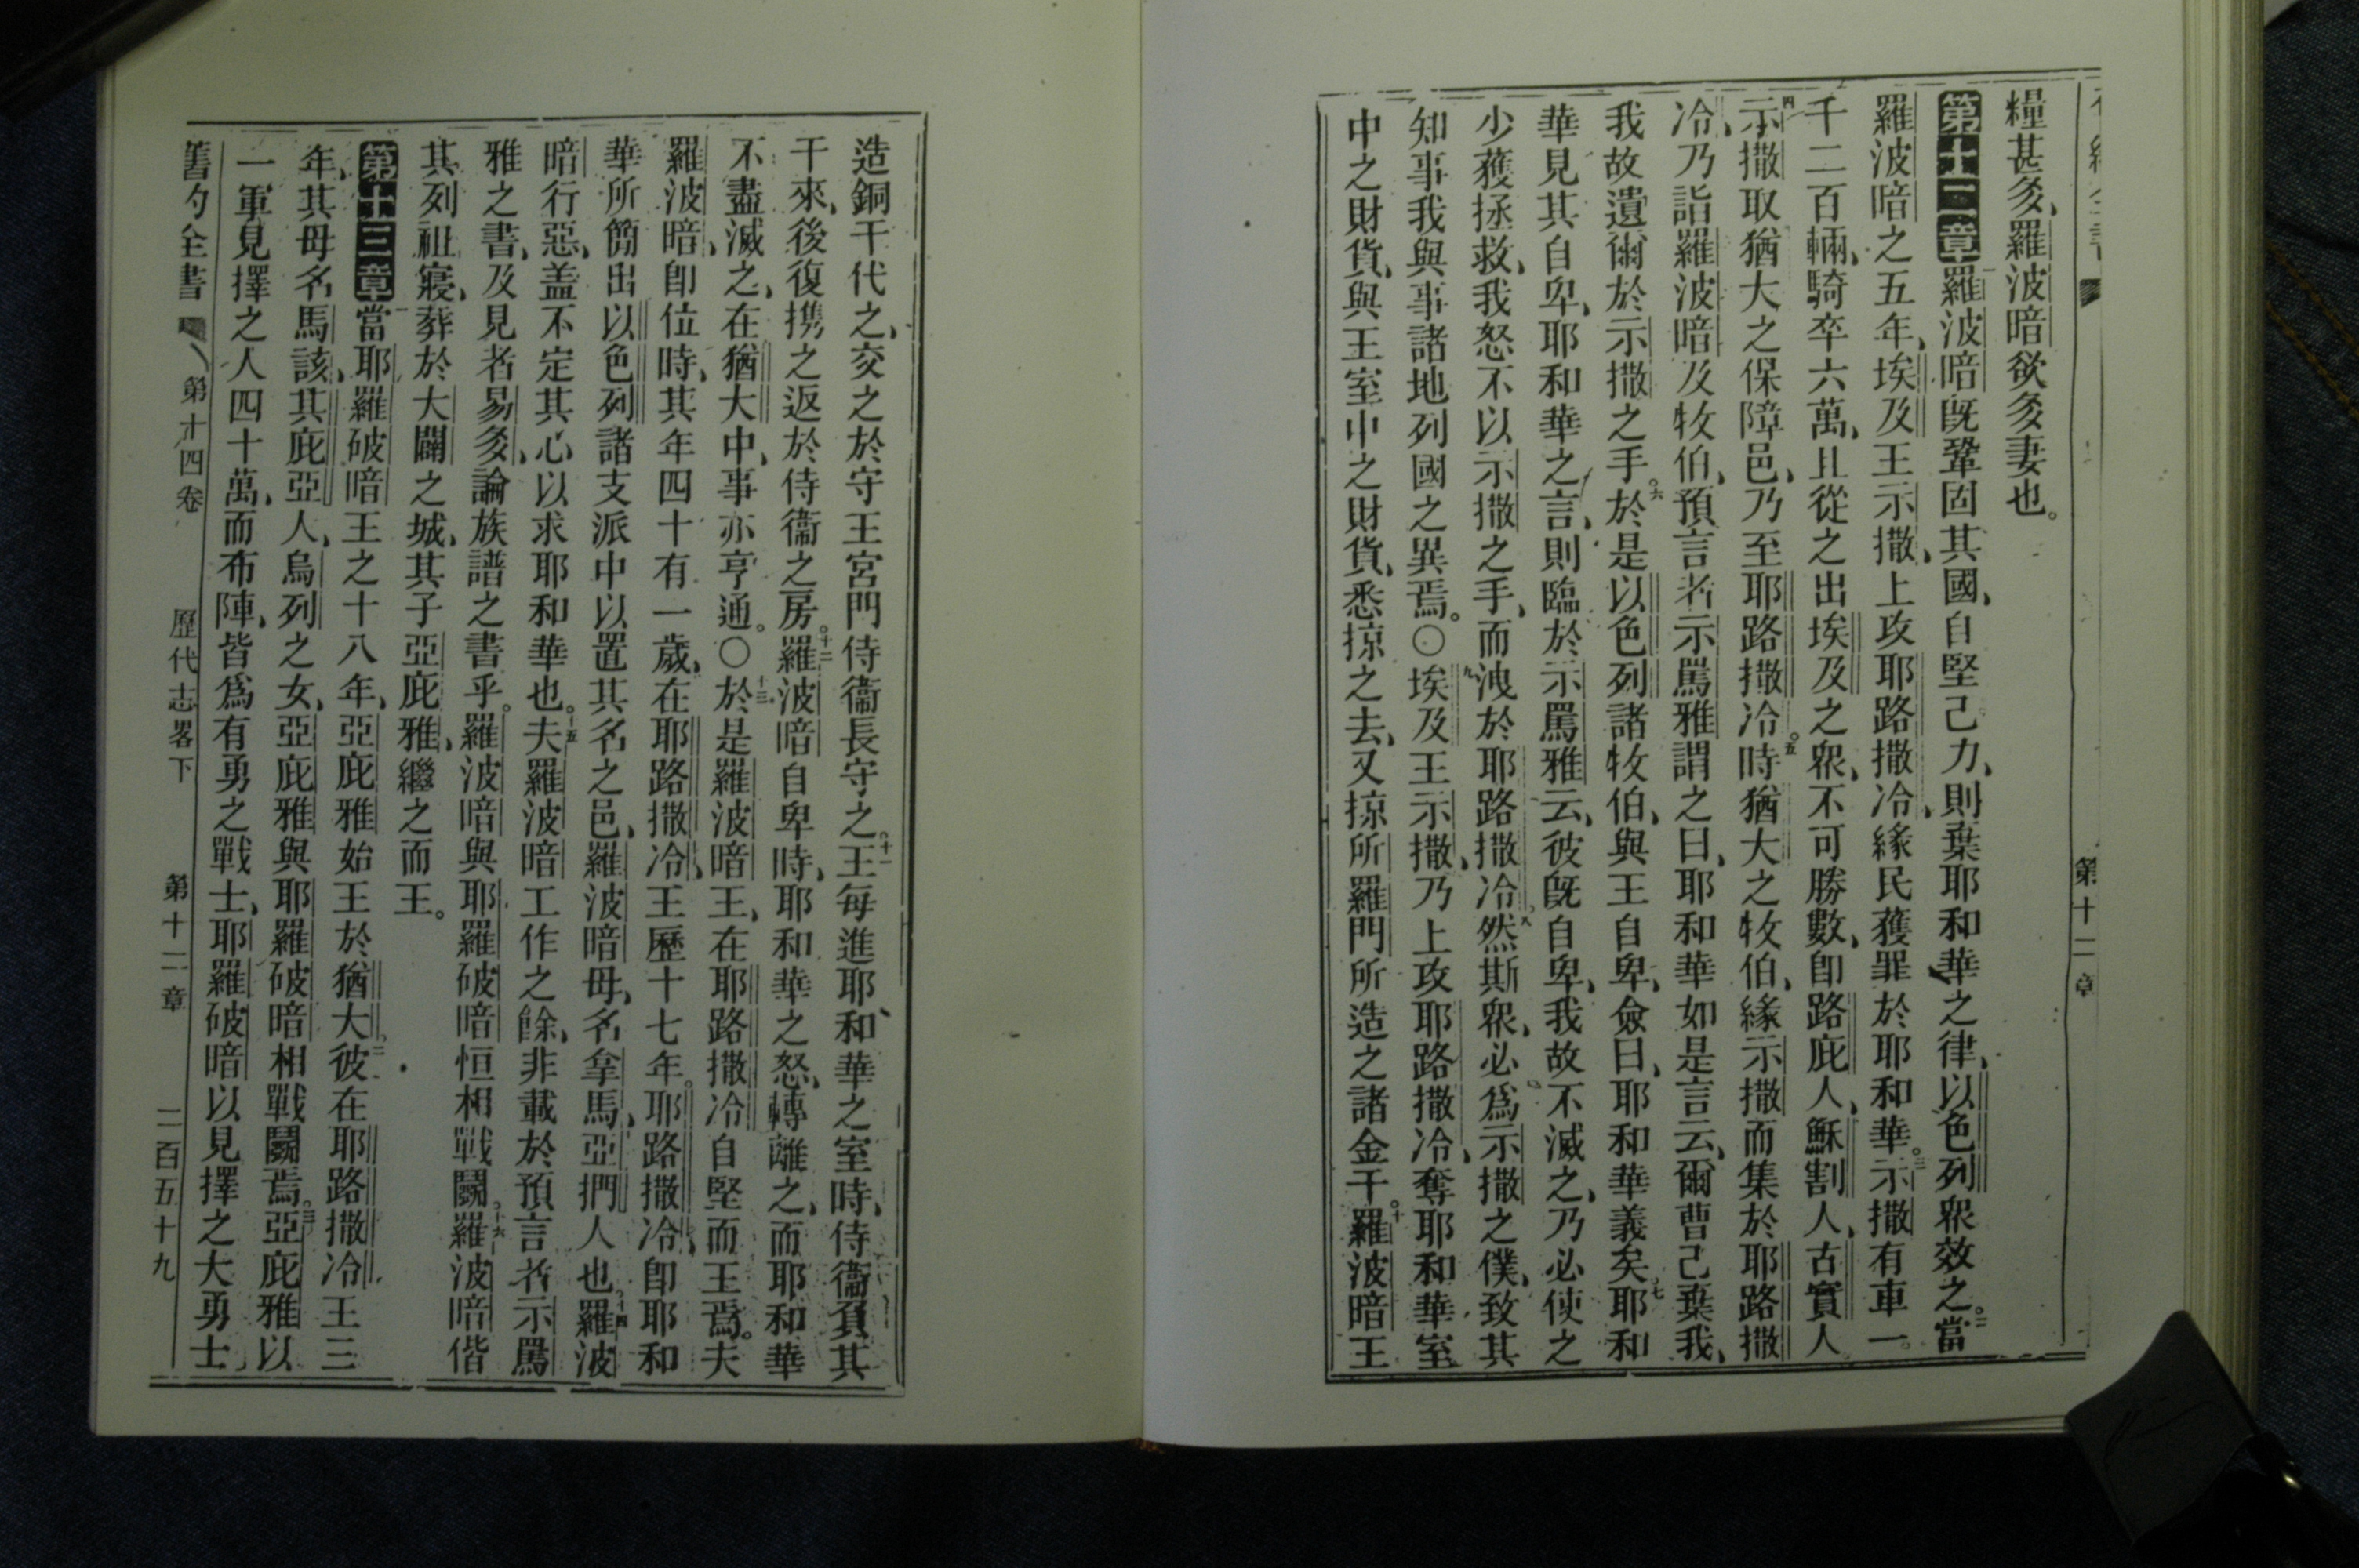 第十二章
糧甚多、羅波暗欲多妻也。
第十二章 一羅波暗旣鞏固其國、自堅己力、則棄耶和華之律、以色列衆效之。二當
羅波暗之五年、埃及王示撒、上攻耶路撒冷、緣民獲罪於耶和華。三示撒有車一
千二百輛、騎卒六萬、且從之出埃及之衆、不可勝數、卽路庇人、穌割人、古實人。
四示撒取猶大之保障邑、乃至耶路撒冷。五時猶大之牧伯、緣示撒而集於耶路撒
冷、乃詣羅波暗及牧伯、預言者示罵雅謂之曰、耶和華如是言云、爾曹己棄我、
我故遺爾於示撒之手。六於是以色列諸牧伯、與王自卑、僉曰、耶和華義矣。七耶和
華見其自卑、耶和華之言、則臨於示罵雅云、彼旣自卑、我故不滅之、乃必使之
少獲拯救、我怒不以示撒之手、而洩於耶路撒冷。八然斯衆、必爲示撒之僕、致其
知事我與事諸地列國之異焉。○九埃及王示撒、乃上攻耶路撒冷、奪耶和華室
中之財貨、與王室中之財貨、悉掠之去、又掠所羅門所造之諸金干。十羅波暗王
造銅干代之、交之於守王宮門侍衞長守之。十一王每進耶和華之室時、侍衞負其
干來、後復攜之返於侍衞之房。十二羅波暗自卑時、耶和華之怒、轉離之、而耶和華
不盡滅之、在猶大中、事亦亨通。○十三於是羅波暗王、在耶路撒冷自堅而王焉。夫
羅波暗、卽位時、其年四十有一歲、在耶路撒冷、王歷十七年。耶路撒冷、卽耶和
華所簡出以色列諸支派中以置其名之邑、羅波暗母、名拿馬、亞捫人也。十四羅波
暗行惡、盖不定其心以求耶和華也。十五夫羅波暗工作之餘、非載於預言者示罵
雅之書、及見者易多、論族譜之書乎。羅波暗與耶羅破暗恒相戰鬭。十六羅波暗偕
其列祖寢、葬於大闢之城、其子亞庇雅、繼之而王。
第十三章 一當耶羅破暗王之十八年、亞庇雅始王於猶大。二彼在耶路撒冷王三
年、其母名馬該、其庇亞人、烏列之女、亞庇雅與耶羅破暗相戰鬭焉。三亞庇雅以
一軍見擇之人四十萬、而布陣、皆爲有勇之戰士、耶羅破暗以見擇之大勇士
舊約全書 第十四卷 歷代志畧下 第十二章 二百五十九